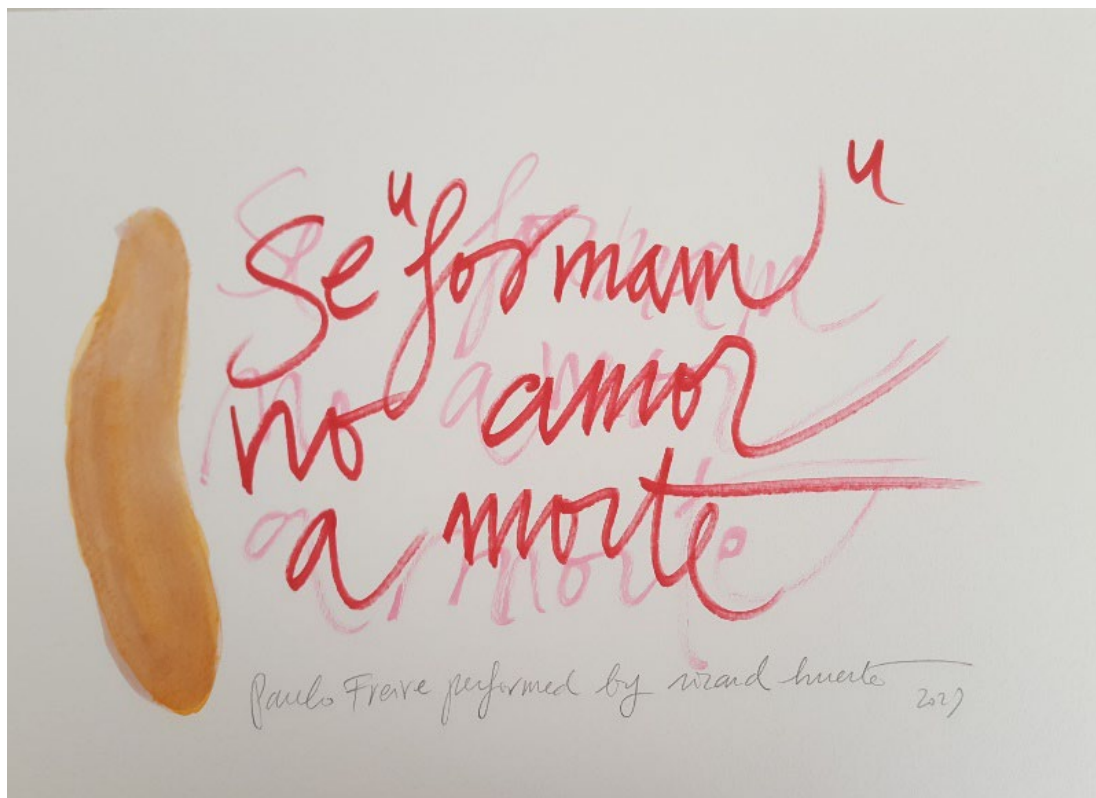 Se "formam"
no amor
a morte
Paulo Freire performed by ricard huerta